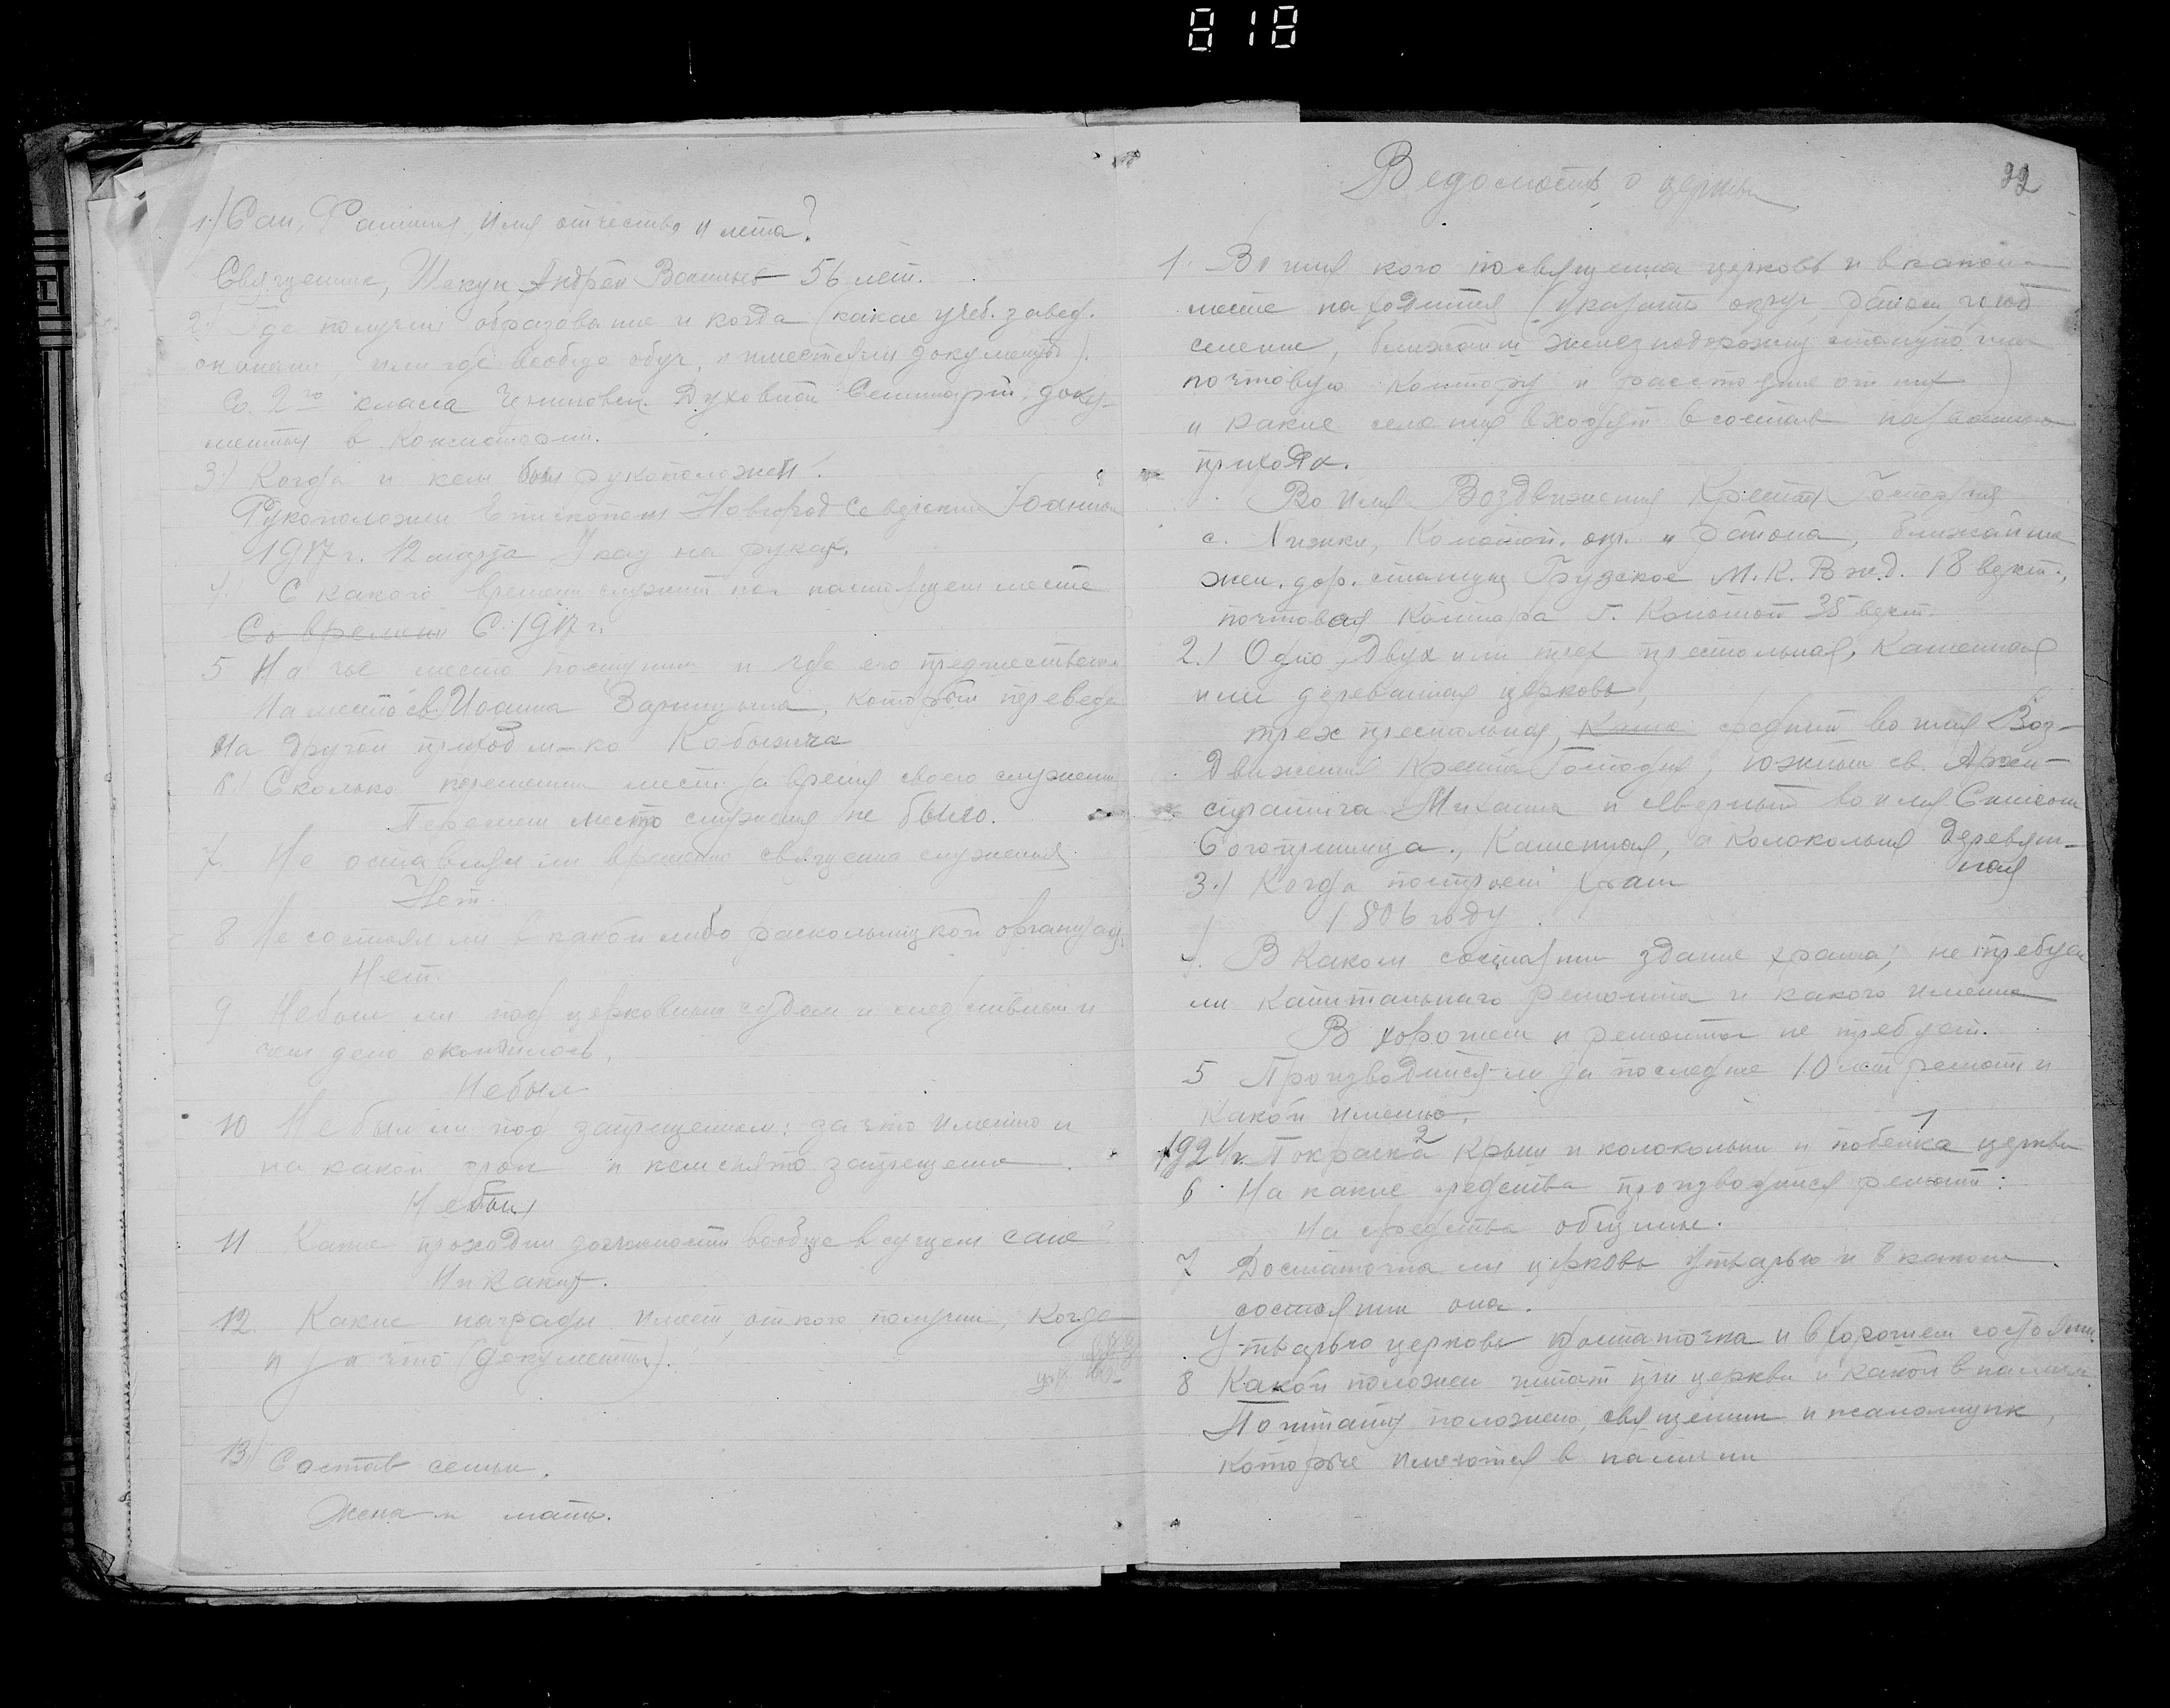 818
1.) Сан, Фамилия, имя отчество и лета?
Священник, Шекун Андрей Васильев 56 лет.
2.) Где получил образование и когда (какое учеб. завед.
окончил, или где вообще обуч. и имеются ли документы).
Со 2го класса Черниговск. Духовной Семинарии, доку-
менты в Консистории.
3.) Когда и кем был рукоположен?
Рукоположен Епископом Новгород Северским Иоанном
1917 г. 12 марта Указ на руках.
4.) С какого времени служит на настоящем месте
Со времени С 1917 г.
5 На чье место поступил и где его предшественник
На место св. Иоанна, который переведен
на другой приход м-ко Кобыжча
6.) Сколько переменил мест за время своего служения
Перемен место служения не было.
7. Не оставлял ли временно священно служения
Нет.
8 Не состоял ли в какой либо раскольницкой организац.
Нет.
9 Небыл ли под церковным судом и следствием и
чем дело окончилось.
Небыл
10 Небыл ли под запрещением: за что именно и
на какой срок и кем снято запрещение.
Небыл
11 Какие проходил должности вообще в сущем сане
Никаких.
12. Какие награды имеет, от кого получил, когда
и за что (документы).
13.) Состав семьи.
Жена и мать.
Ведомость о церкви
22
1. Во имя кого посвященна церковь и в каком
месте находится (указать округ, район,
селение, ближайшую железнодорожную станцию или
почтовую контору и расстояние от них)
и какие селения входят в состав названного
прихода.
Во имя Воздвижения Креста Господня
с. Хижки, Конотоп. окр. и района, ближайшая
жел. дор. станция Грузское М. К. В ж.д. 18 верст.,
почтовая контора г. Конотоп 35 верст.
2.) Одно, Двух или трех престольная, Каменная
или деревянная церковь,
трех престольная, Каме средний во имя Воз-
движения Креста Господня, южный св. Архи-
стратига Михаила и северный во имя Симеона
Богоприимца., Каменная, а колокольня деревян-
ная
3.) Когда построен храм
1806 году.
4. В каком состоянии здание храма; не требует
ли капитального ремонта и какого именно
В хорошем и ремонта не требует.
5 Производился-ли за последние 10 лет ремонт и
какой именно.
1924 г. Покраска 2 крыш и колокольни и побелка 1 церкви
6. На какие средства производился ремонт:
На средства общины.
7 Достаточна ли церковь утварью и в каком
состоянии она.
Утварью церковь достаточна и в хорошем состоянии.
8 Какой положен штат при церкви и какой в наличии.
По штату положено, священник и псаломщик,
которые имеются в наличии